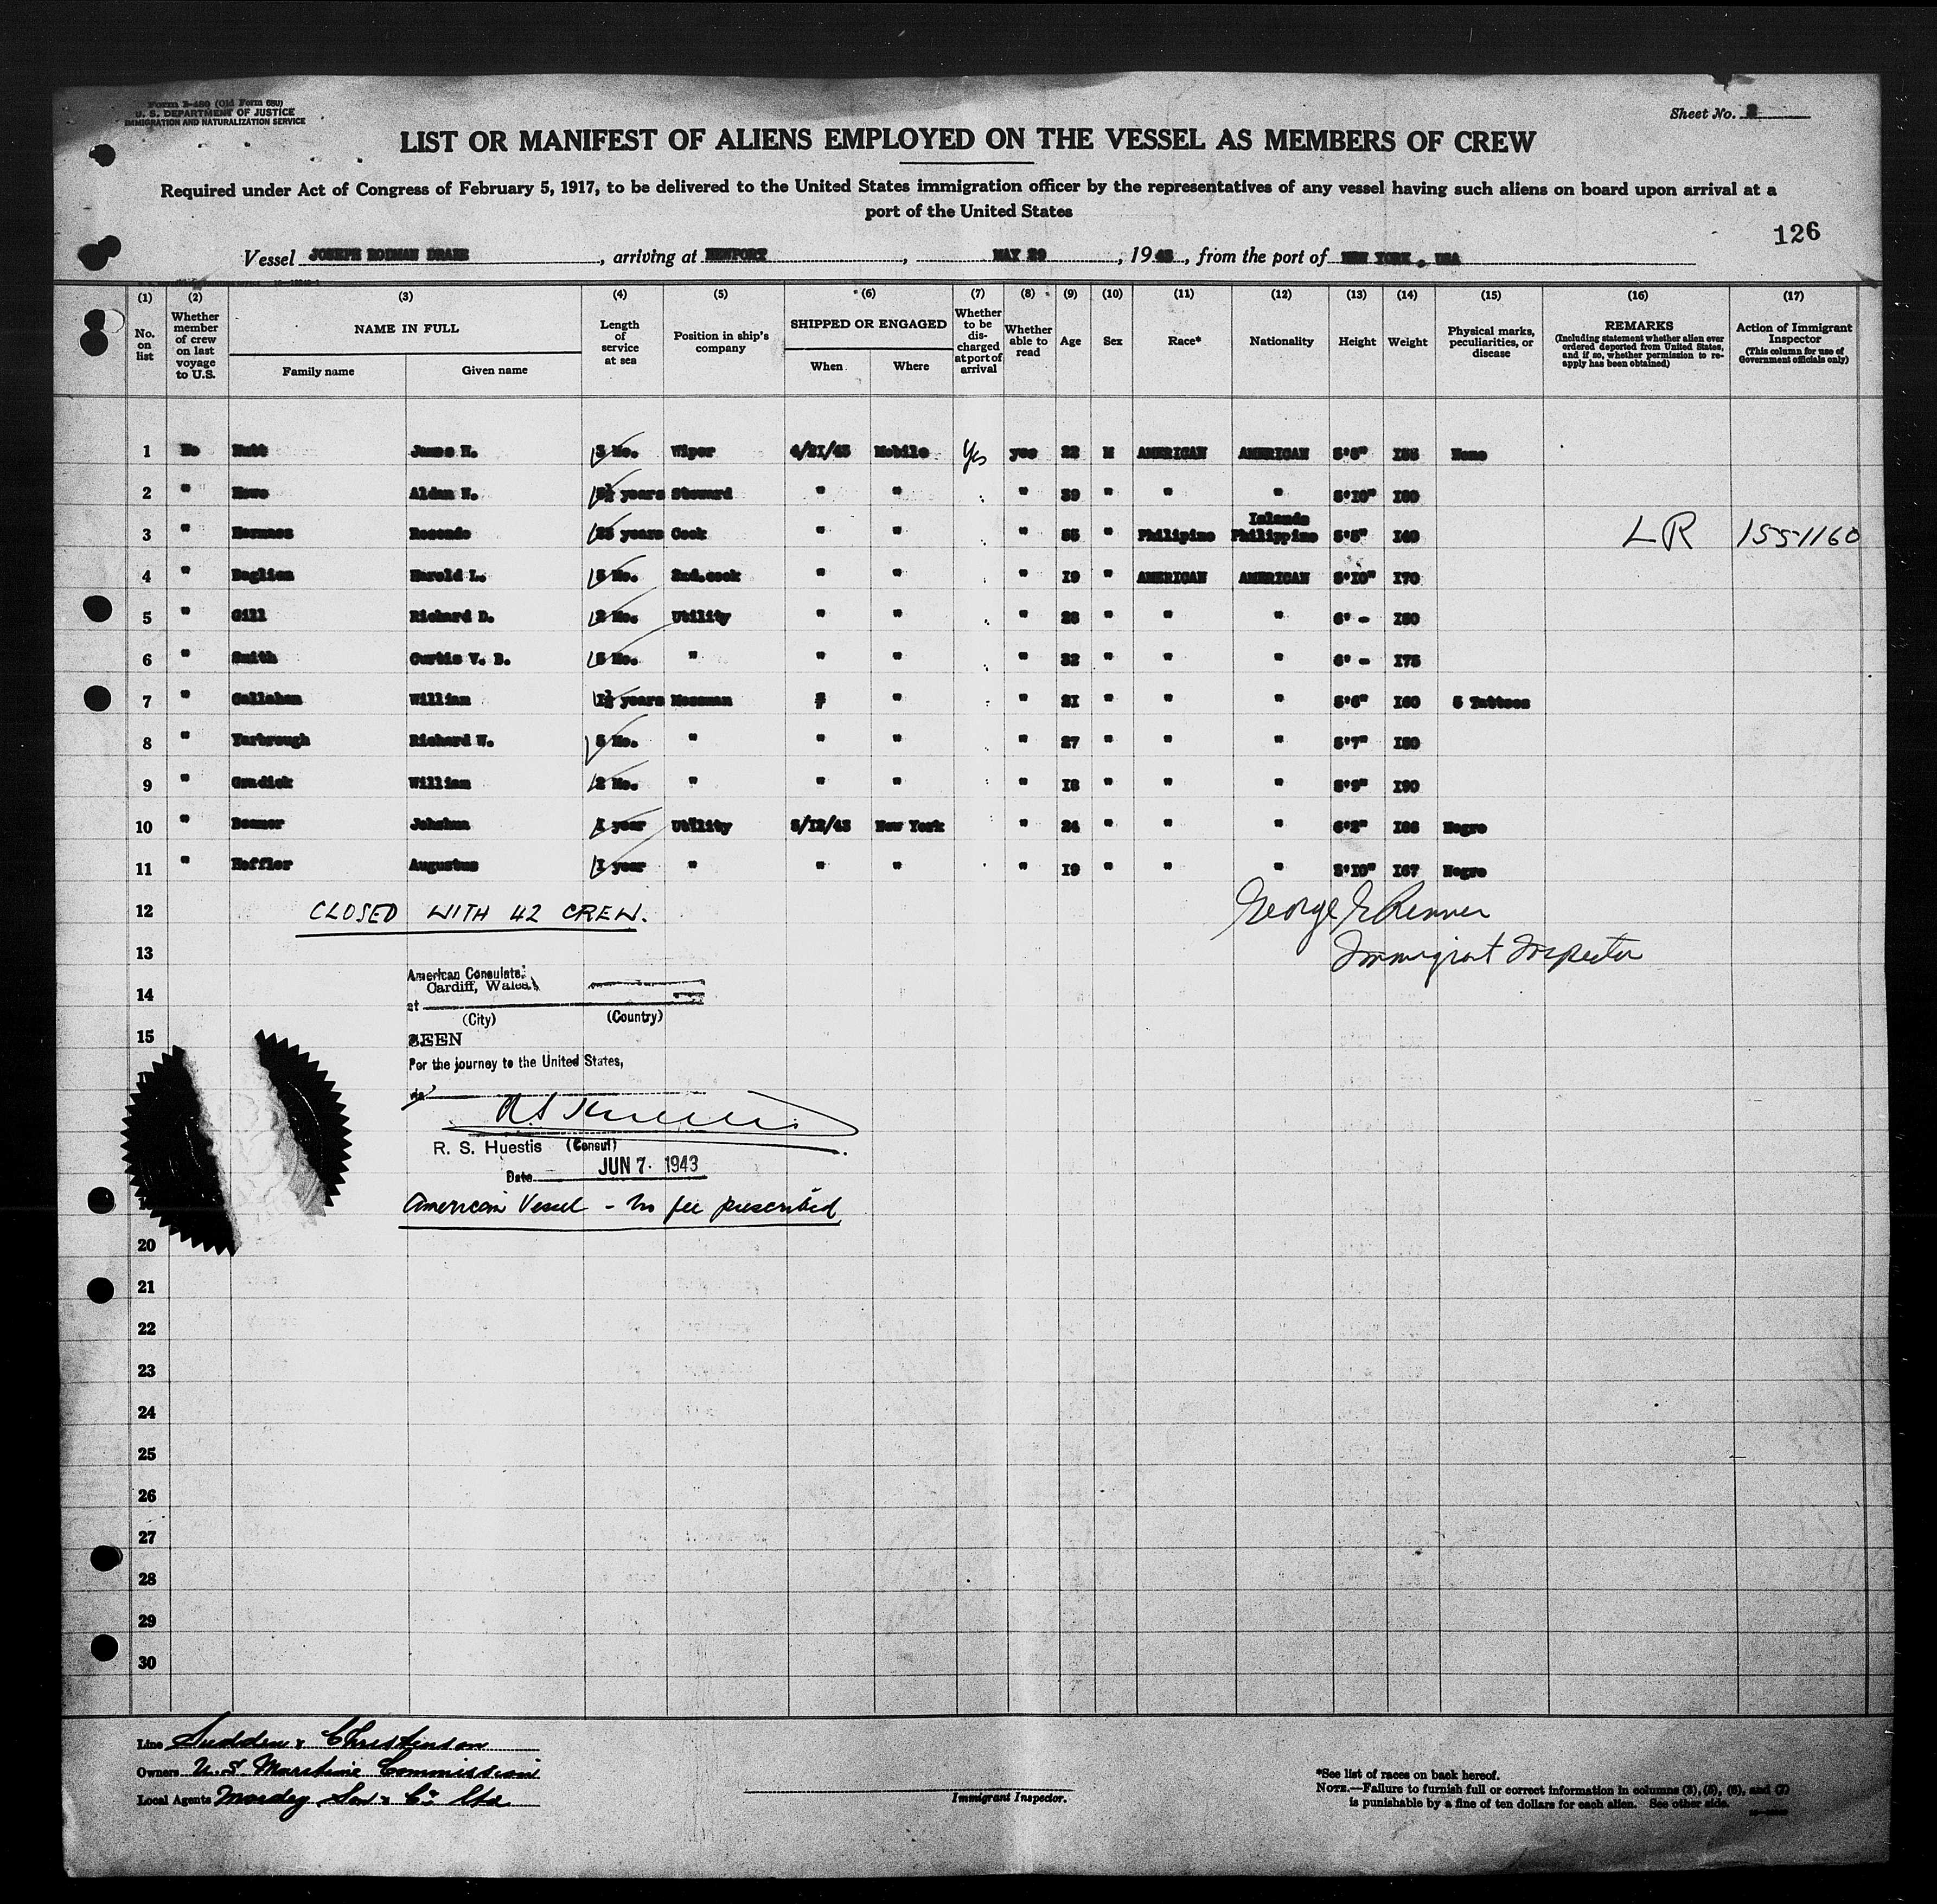 Form I-480 (Old Form 680)
U. S. DEPARTMENT OF JUSTICE
IMMIGRATION AND NATURALIZATION SERVICE
Sheet No.
LIST OR MANIFEST OF ALIENS EMPLOYED ON THE VESSEL AS MEMBERS OF CREW
Required under Act of Congress of February 5, 1917, to be delivered to the United States immigration officer by the representatives of any vessel having such aliens on board upon arrival at a
port of the United States
126
Vessel JOSEPH RODMAN DRAKE, arriving at NEWPORT, MAY 29, 1943, from the port of NEW YORK, USA
(1) (2) (3) (4) (5) (6) (7) (8) (9) (10) (11) (12) (13) (14) (15) (16) (17)
No. on list
Whether member of crew on last voyage to U.S.
NAME IN FULL
Family name
Given name
Length of service at sea
Position in ship's company
SHIPPED OR ENGAGED
When
Where
Whether to be discharged at port of arrival
Whether able to read
Age
Sex
Race*
Nationality
Height
Weight
Physical marks, peculiarities, or disease
REMARKS
(Including statement whether alien ever ordered deported from United States, and if so, whether permission to re-apply has been obtained)
Action of Immigrant Inspector
(This column for use of Government officials only)
1 No James H. Mo. Wiper 4/21/43 Mobile Yes yes 22 M AMERICAN AMERICAN None
2 " Steward " " " 39 " " " 5'10" 160
Islands
3 " years Cook " " " 55 " Philipino Philippine 5'5" 140 LR 155-1160
4 " Harold L. Mo. 2nd.cook " " " 19 " AMERICAN AMERICAN 5'10" 170
5 " Gill Richard D. 2 Mo. Utility " " " " " " 6' -
6 " Smith Curtis V. B. Mo. " " " " 32 " " " 6' - 175
7 " Callahan William 1½ years Messman " " " 21 " " " 5'6" 160 5 Tattoos
8 " Yarbrough Richard W. Mo. " " " " 27 " " " 5'7"
9 " Gradick William 2 Mo. " " " " 18 " " " 5'9" 190
10 " Johshua 1 year Utility 5/12/43 New York " 24 " " " 6'2" Negro
11 " Heffler Augustus 1 year " " " " 19 " " " 5'10" 167 Negro
12 CLOSED WITH 42 CREW. George E Renner
13 Immigrant Inspector
American Consulate,
Cardiff, Wales
14
at
(City) (Country)
15
SEEN
For the journey to the United States,
via
R. S. Huestis (Consul)
Date JUN 7 1943
American Vessel - no fee prescribed
20
21
22
23
24
25
26
27
28
29
30
Line Sudden & Christenson
Owners U.S Maritime Commission
Local Agents Mordey Son & Co Ltd
Immigrant Inspector.
*See list of races on back hereof.
NOTE.—Failure to furnish full or correct information in columns (3), (5), (6), and (7)
is punishable by a fine of ten dollars for each alien. See other side.